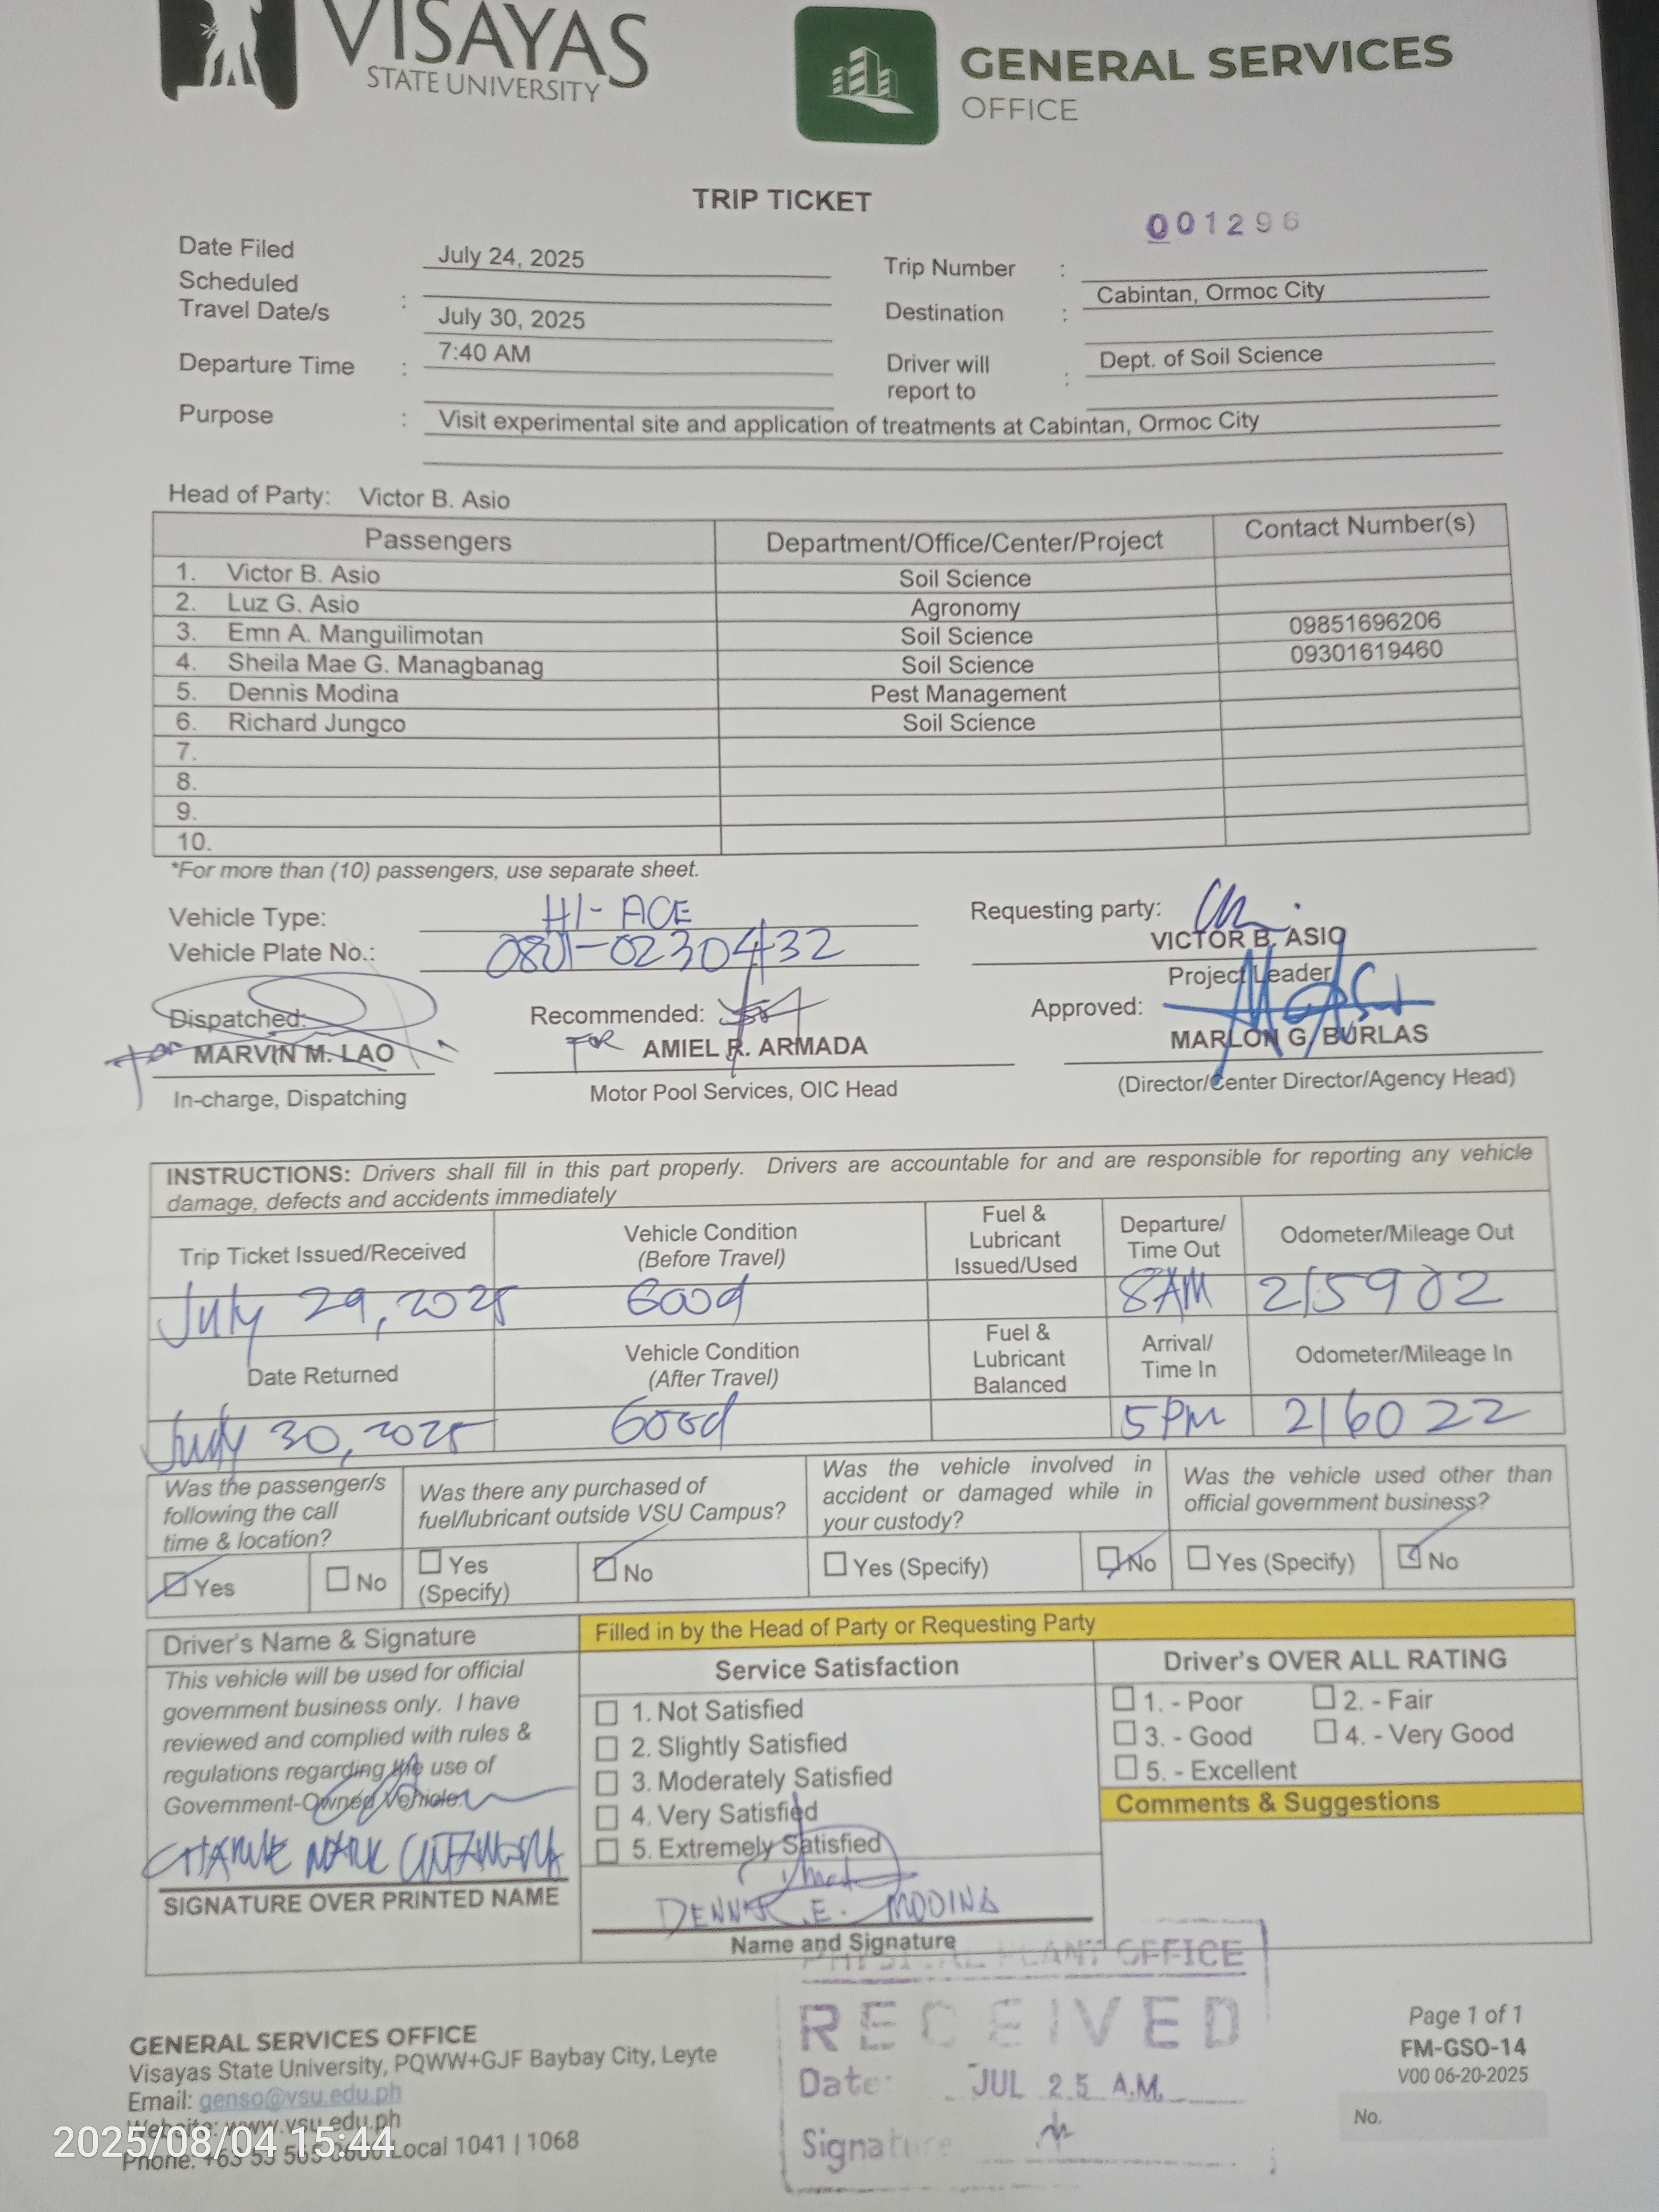 VISAYAS
STATE UNIVERSITY
GENERAL SERVICES
OFFICE
TRIP TICKET
001296
Date Filed July 24, 2025
Trip Number :
Scheduled
Travel Date/s : July 30, 2025
Destination : Cabintan, Ormoc City
Departure Time : 7:40 AM
Driver will
report to : Dept. of Soil Science
Purpose : Visit experimental site and application of treatments at Cabintan, Ormoc City
Head of Party: Victor B. Asio
Passengers Department/Office/Center/Project Contact Number(s)
1. Victor B. Asio Soil Science
2. Luz G. Asio Agronomy
3. Emn A. Manguilimotan Soil Science 09851696206
4. Sheila Mae G. Managbanag Soil Science 09301619460
5. Dennis Modina Pest Management
6. Richard Jungco Soil Science
7.
8.
9.
10.
*For more than (10) passengers, use separate sheet.
Vehicle Type: HI-ACE
Requesting party:
VICTOR B. ASIO
Vehicle Plate No.: 0801-0230432
Project Leader
Dispatched: Recommended: Approved:
For MARVIN M. LAO FOR AMIEL R. ARMADA MARLON G. BURLAS
In-charge, Dispatching Motor Pool Services, OIC Head (Director/Center Director/Agency Head)
INSTRUCTIONS: Drivers shall fill in this part properly. Drivers are accountable for and are responsible for reporting any vehicle
damage, defects and accidents immediately
Trip Ticket Issued/Received
Vehicle Condition
(Before Travel)
Fuel &
Lubricant
Issued/Used
Departure/
Time Out
Odometer/Mileage Out
July 29, 2025 Good 8AM 215902
Date Returned
Vehicle Condition
(After Travel)
Fuel &
Lubricant
Balanced
Arrival/
Time In
Odometer/Mileage In
July 30, 2025 Good 5PM 216022
Was the passenger/s
following the call
time & location?
Was there any purchased of
fuel/lubricant outside VSU Campus?
Was the vehicle involved in
accident or damaged while in
your custody?
Was the vehicle used other than
official government business?
Yes No Yes
(Specify) No Yes (Specify) No Yes (Specify) No
Driver's Name & Signature
This vehicle will be used for official
government business only. I have
reviewed and complied with rules &
regulations regarding the use of
Government-Owned Vehicle.
SIGNATURE OVER PRINTED NAME
Filled in by the Head of Party or Requesting Party
Service Satisfaction
1. Not Satisfied
2. Slightly Satisfied
3. Moderately Satisfied
4. Very Satisfied
5. Extremely Satisfied
DENNIS E. MODINA
Name and Signature
Driver's OVER ALL RATING
1. - Poor 2. - Fair
3. - Good 4. - Very Good
5. - Excellent
Comments & Suggestions
PHYSICAL PLANT OFFICE
RECEIVED
Date: JUL 25 A.M.
Signature
GENERAL SERVICES OFFICE
Visayas State University, PQWW+GJF Baybay City, Leyte
Email: genso@vsu.edu.ph
Website: www.vsu.edu.ph
Phone: +63 53 565 0600 Local 1041 | 1068
Page 1 of 1
FM-GSO-14
V00 06-20-2025
No.
2025/08/04 15:44